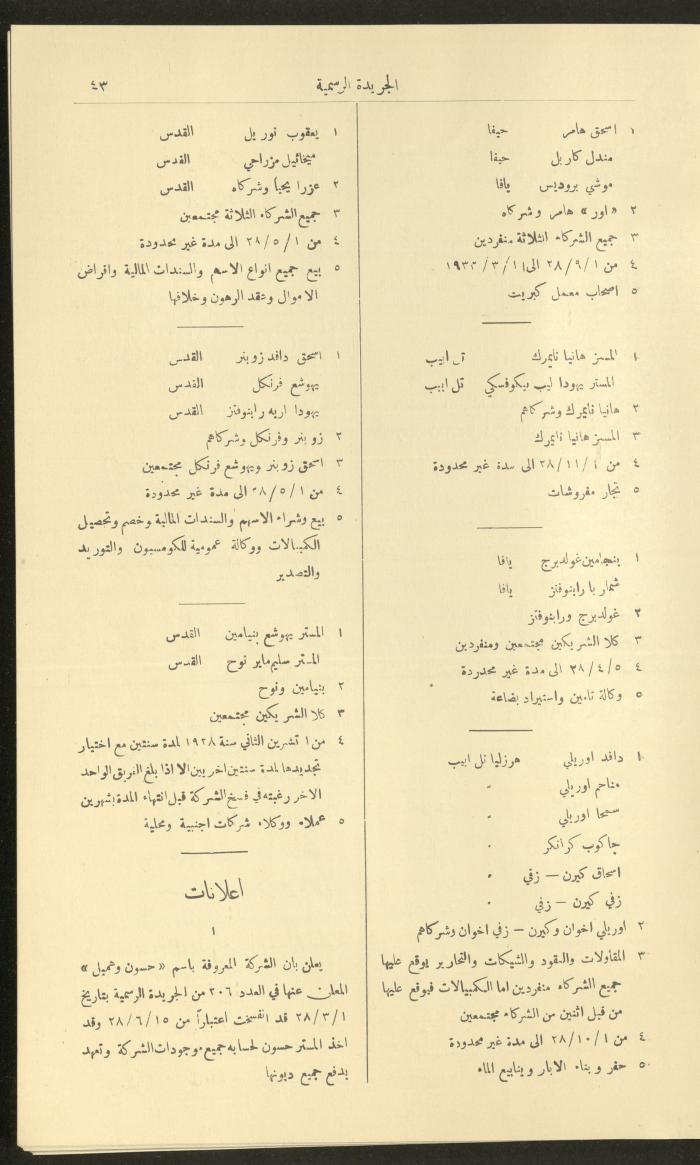 الجريدة الرسمية
٤٣
١ اسحق هامر حيفا
مندل كاربل حيفا
موشي بروديس يافا
٢ «اور» هامر وشركاه
٣ جميع الشركاء الثلاثة منفردين
٤ من ٢٨/٩/١ الى ١٩٣٣/٣/١١
٥ اصحاب معمل كبريت
١ المسز هانيا نايمرك تل ابيب
المستر يهودا ليب بيكوفسكي تل ابيب
٢ هانيا نايمرك وشركاهم
٣ المسز هانيا نايمرك
٤ من ٢٨/١١/١ الى مدة غير محدودة
٥ تجار مفروشات
١ بنجامين غولدبرج يافا
شمار يا رابنوفتز يافا
٢ غولدبرج ورابنوفتز
٣ كلا الشريكين مجتمعين ومنفردين
٤ ٢٨/٤/٥ الى مدة غير محدودة
٥ وكالة تامين واستيراد بضاعة
١ دافد اوريلي هرزليا تل ابيب
مناحم اوريلي "
سمحا اوريلي "
جاكوب كرانكر "
اسحاق كيرن — زفي "
زفي كيرن — زفي "
٢ اوريلي اخوان وكيرن — زفي اخوان وشركاهم
٣ المقاولات والنقود والشيكات والتحارير يوقع عليها
جميع الشركاء منفردين اما الكمبيالات فيوقع عليها
من قبل اثنين من الشركاء مجتمعين
٤ من ٢٨/١٠/١ الى مدة غير محدودة
٥ حفر وبناء الابار وينابيع الماء
١ يعقوب نوريل القدس
ميخائيل مزراحي القدس
٢ عزرا يحيا وشركاه القدس
٣ جميع الشركاء الثلاثة مجتمعين
٤ من ٢٨/٥/١ الى مدة غير محدودة
٥ بيع جميع انواع الاسهم والسندات المالية واقراض
الاموال وعقد الرهون وخلافها
١ اسحق دافد زوبنر القدس
يهوشع فرنكل القدس
يهودا اريه رابنوفتز القدس
٢ زوبنر وفرنكل وشركاهم
٣ اسحق زوبنر ويهوشع فرنكل مجتمعين
٤ من ٢٨/٥/١ الى مدة غير محدودة
٥ بيع وشراء الاسهم والسندات المالية وخصم وتحصيل
الكمبيالات ووكالة عمومية للكومسيون والتوريد
والتصدير
١ المستر يهوشع بنيامين القدس
المستر سليم ماير نوح القدس
٢ بنيامين ونوح
٣ كلا الشريكين مجتمعين
٤ من ١ تشرين الثاني سنة ١٩٢٨ لمدة سنتين مع اختيار
تجديدها لمدة سنتين اخريين الا اذا بلغ الفريق الواحد
الاخر رغبته في فسخ الشركة قبل انتهاء المدة بشهرين
٥ عملاء ووكلاء شركات اجنبية ومحلية
اعلانات
١
يعلن بان الشركة المعروفة باسم «حسون وهميل»
المعلن عنها في العدد ٢٠٦ من الجريدة الرسمية بتاريخ
٢٨/٣/١ قد انفسخت اعتباراً من ٢٨/٦/١٥ وقد
اخذ المستر حسون لحسابه جميع موجودات الشركة وتعهد
بدفع جميع ديونها